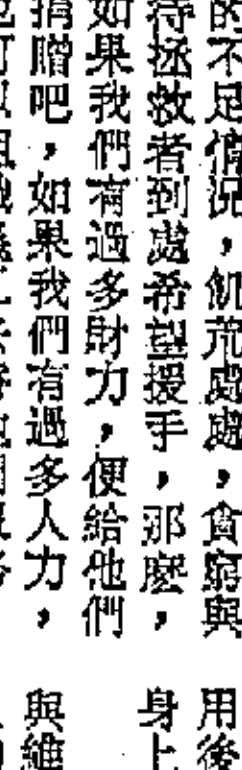 的不足情況，飢荒處處，貧窮與
待拯救者到處希望援手，那麼，
如果我們有過多財力，便給他們
捐贈吧，如果我們有過多人力，
用後
身上
與維